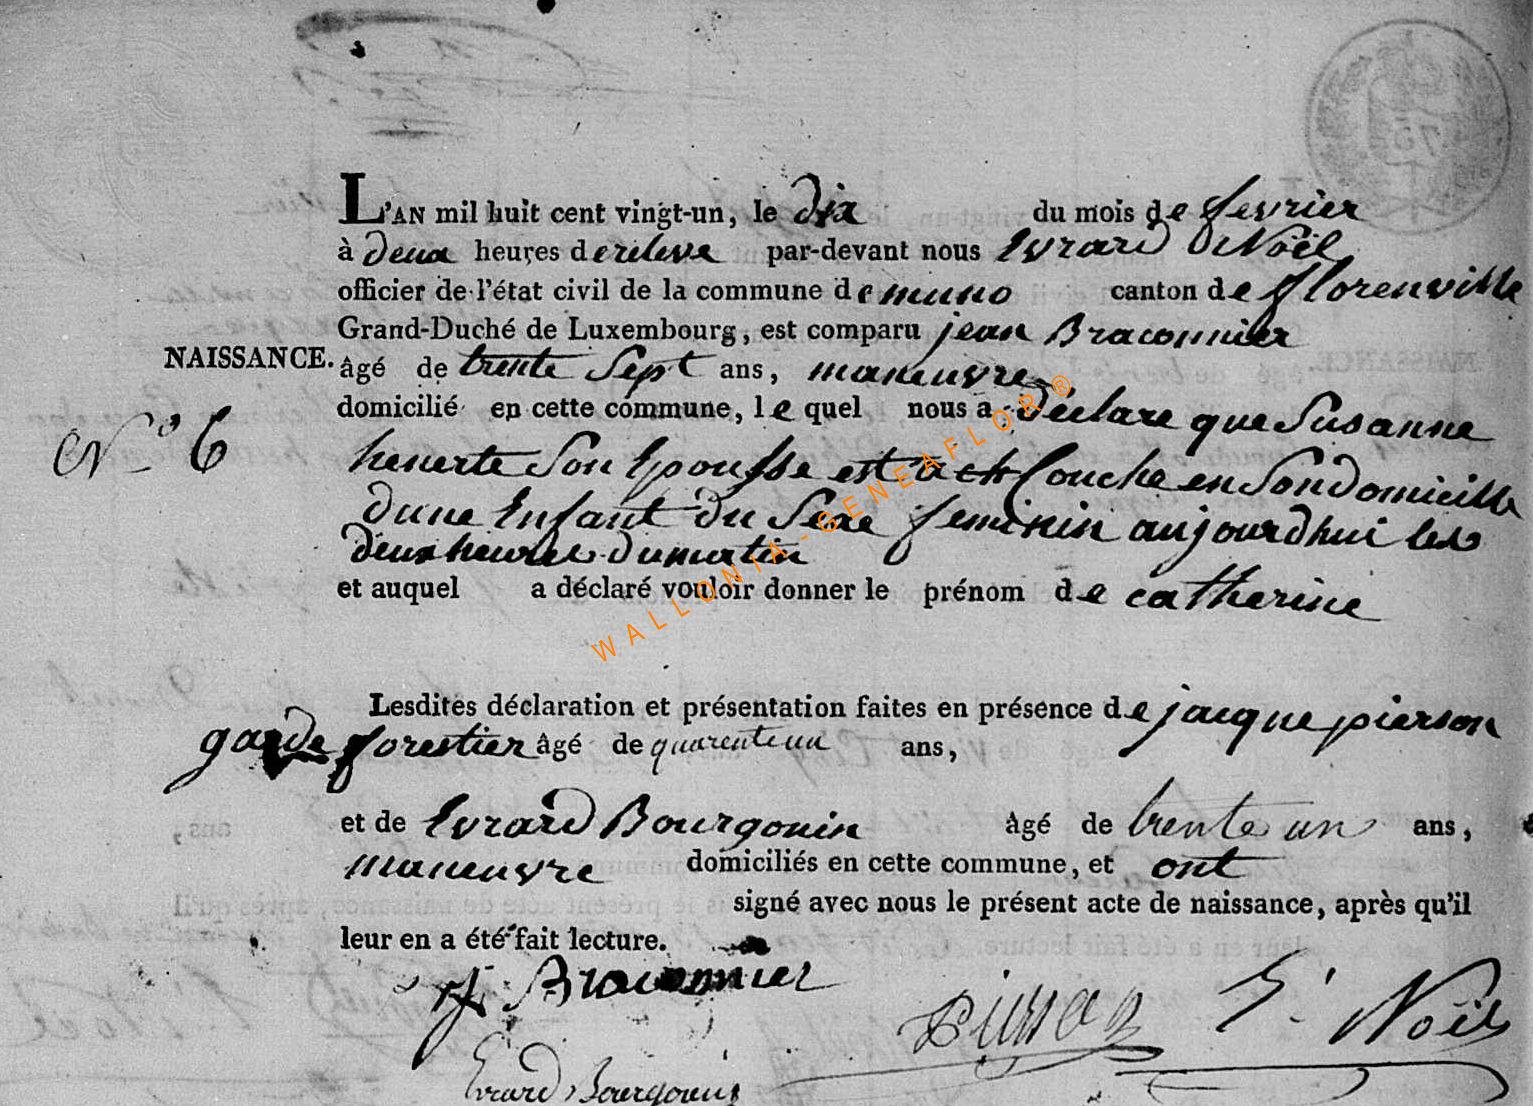 L'AN mil huit cent vingt-un, le dix du mois de fevrier
à deux heures de releve par-devant nous Evrard Noël
officier de l'état civil de la commune de muno canton de florenville
Grand-Duché de Luxembourg, est comparu jean Braconnier
NAISSANCE. âgé de trente sept ans, maneuvre
domicilié en cette commune, le quel nous a déclare que Susanne
N.° 6 henerte Son Epousse est a Couche en Son domicille
dune Enfant du Sexe feminin aujourdhui les
deux heures du matin
et auquel a déclaré vouloir donner le prénom de catherine
Lesdites déclaration et présentation faites en présence de jacque pierson
garde forestier âgé de quarente un ans,
et de Evrard Bourgouin âgé de trente un ans,
maneuvre domiciliés en cette commune, et ont
signé avec nous le présent acte de naissance, après qu'il
leur en a été fait lecture.
J Braconnier
E. Noël
Evrard Bourgouin
WALLONIA-GENEAFLOR®
75